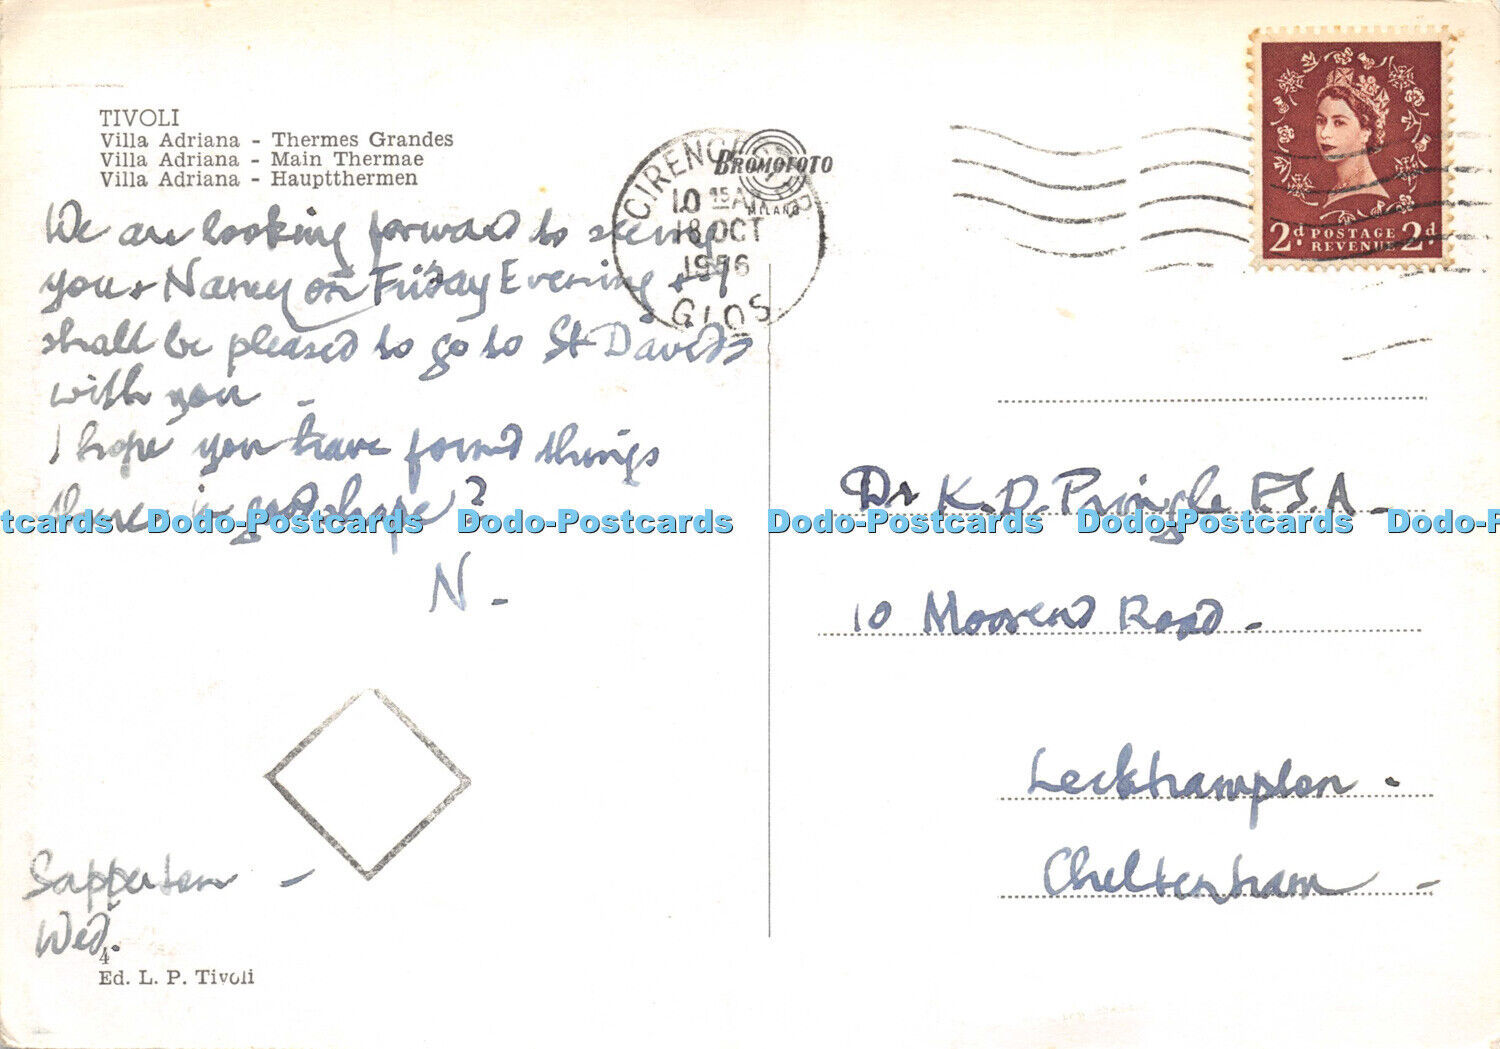 TIVOLI
Villa Adriana - Thermes Grandes
Villa Adriana - Main Thermae
Villa Adriana - Hauptthermen
We are looking forward to seeing
you & Nancy on Friday Evening & I
shall be pleased to go to St Davids
with you -
I hope you have found things
there in good shape?
N -
Sapperton -
Wed.
4
Ed. L. P. Tivoli
BROMOFOTO
MILANO
CIRENCESTER
10 15 AM
18 OCT
1956
GLOS
2d POSTAGE 2d
REVENUE
Dr K. D. Pringle F.S.A -
10 Moorend Road -
Leckhampton -
Cheltenham -
tcards Dodo-Postcards Dodo-Postcards Dodo-P